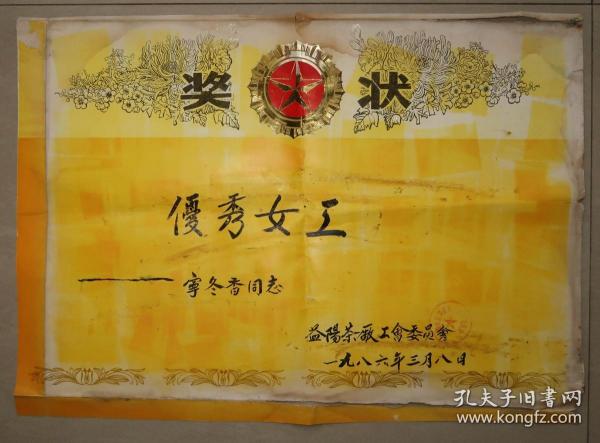 奖状
優秀女工
寕冬香同志
益陽茶厰工會委員會
一九八六年三月八日
孔夫子旧书网
www.kongfz.com